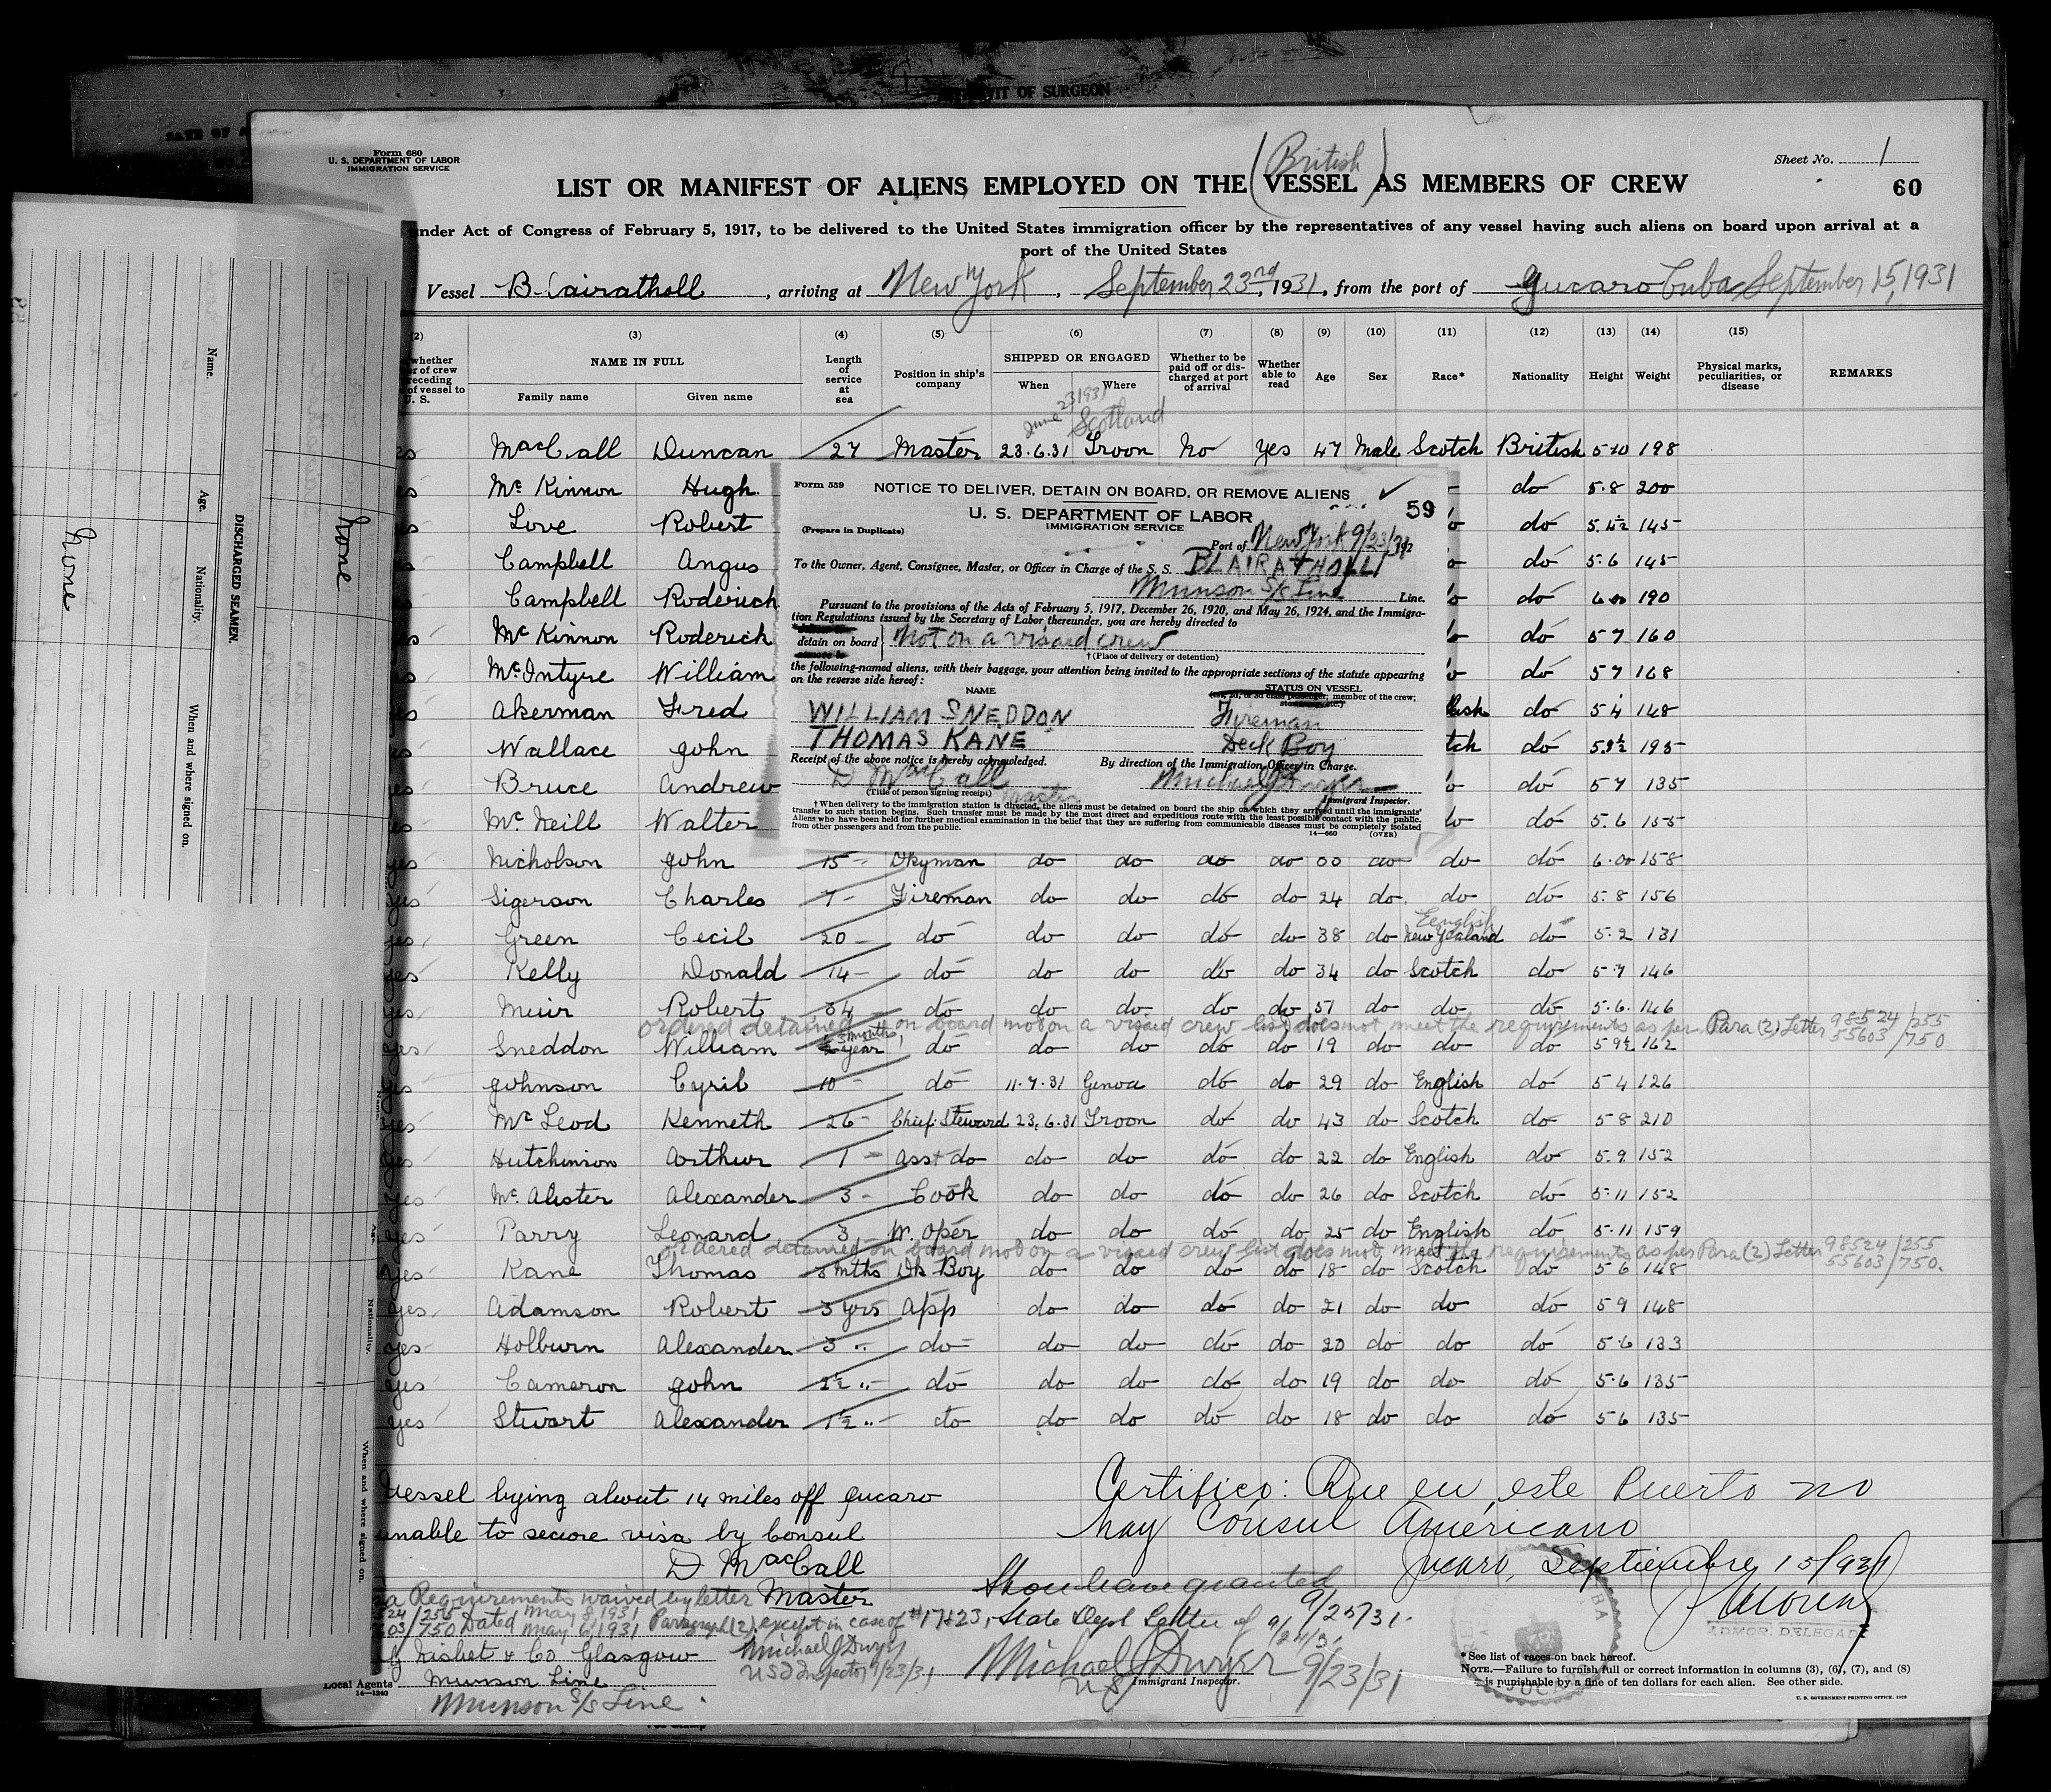 AFFIDAVIT OF SURGEON
Form 680
U. S. DEPARTMENT OF LABOR
IMMIGRATION SERVICE
Sheet No. 1
(British)
LIST OR MANIFEST OF ALIENS EMPLOYED ON THE VESSEL AS MEMBERS OF CREW
60
under Act of Congress of February 5, 1917, to be delivered to the United States immigration officer by the representatives of any vessel having such aliens on board upon arrival at a
port of the United States
Vessel Blairatholl, arriving at New York, September 23rd, 1931, from the port of Jucaro Cuba September 15, 1931
(2) (3) (4) (5) (6) (7) (8) (9) (10) (11) (12) (13) (14) (15)
whether of crew preceding of vessel to U. S.
NAME IN FULL
Family name Given name
Length of service at sea
Position in ship's company
SHIPPED OR ENGAGED
When Where
Whether to be paid off or discharged at port of arrival
Whether able to read
Age Sex Race* Nationality Height Weight
Physical marks, peculiarities, or disease
REMARKS
June 23 1931 Scotland
MacCall Duncan 27 Master 23.6.31 Troon No Yes 47 Male Scotch British 5-10 198
McKinnon Hugh do 5.8 200
Love Robert do 5.4½ 145
Campbell Angus do 5.6 145
Campbell Roderick do 6 00 190
McKinnon Roderick do 5 7 160
McIntyre William do 5 7 168
Akerman Fred do 5 4 148
Wallace John do 5.8½ 195
Bruce Andrew do 5 7 135
McNeill Walter do 5.6 155
Nicholson John 15 Dkyman do do do do do do do 6.00 158
Sigerson Charles 7 Fireman do do do do 24 do do do 5.8 156
English
Green Cecil 20 do do do do do 38 do New Zealand do 5.2 131
Kelly Donald 14 do do do do do 34 do Scotch do 5.7 146
Muir Robert 34 do do do do do 51 do do do 5.6. 146
ordered detained on board not on a visaed crew list does not meet the requirements as per Para (2) Letter 98524/255 55603/750
Sneddon William 3 months year do do do do do 19 do do do 5 9½ 162
Johnson Cyril 10 do 11.7.31 Genoa do do 29 do English do 5 4 126
McLeod Kenneth 26 Chief Steward 23.6.31 Troon do do 43 do Scotch do 5 8 210
Hutchinson Arthur 1 asst do do do do do 22 do English do 5.9 152
McAlister Alexander 3 Cook do do do do 26 do Scotch do 5.11 152
Parry Leonard 3 W. Oper do do do do 25 do English do 5.11 159
ordered detained on board not on a visaed crew list does not meet the requirements as per Para (2) Letter 98524/255 55603/750.
Kane Thomas 8 mths Dk Boy do do do do 18 do Scotch do 5 6 148
Adamson Robert 3 yrs App do do do do 21 do do do 5 9 148
Holburn Alexander 3 " do do do do do 20 do do do 5.6 133
Cameron John 2½ " do do do do do 19 do do do 5.6 135
Stewart Alexander 1½ " do do do do do 18 do do do 5 6 135
Form 559
NOTICE TO DELIVER, DETAIN ON BOARD, OR REMOVE ALIENS
59
U. S. DEPARTMENT OF LABOR
IMMIGRATION SERVICE
(Prepare in Duplicate)
Port of New York 9/23/31, 192
To the Owner, Agent, Consignee, Master, or Officer in Charge of the S. S. BLAIRATHOLL
Munson S/S Line Line.
Pursuant to the provisions of the Acts of February 5, 1917, December 26, 1920, and May 26, 1924, and the Immigra-
tion Regulations issued by the Secretary of Labor thereunder, you are hereby directed to
detain on board } Not on a visaed crew
†(Place of delivery or detention)
the following-named aliens, with their baggage, your attention being invited to the appropriate sections of the statute appearing
on the reverse side hereof:
NAME STATUS ON VESSEL
(1st, 2d, or 3d class passenger; member of the crew; stowaway, etc.)
WILLIAM SNEDDON Fireman
THOMAS KANE Deck Boy
Receipt of the above notice is hereby acknowledged. By direction of the Immigration Officer in Charge.
D MacCall Master Michael J Dwyer
(Title of person signing receipt) Immigrant Inspector.
†When delivery to the immigration station is directed, the aliens must be detained on board the ship on which they arrived until the immigrants'
transfer to such station begins. Such transfer must be made by the most direct and expeditious route with the least possible contact with the public.
Aliens who have been held for further medical examination in the belief that they are suffering from communicable diseases must be completely isolated
from other passengers and from the public.
14—660 (OVER)
Vessel lying about 14 miles off Jucaro
unable to secure visa by Consul
D MacCall
Master
Certifico: Que en este Puerto no
hay Cónsul Américano
Jucaro, Septiembre 15/931
ADMOR. DELEGADO
Requirements waived by letter
24/255 Dated May 8, 1931
03/750 May 6, 1931 Paragraph (2) except in case of #17 & 23,
Shore leave granted 9/25/31.
State Dept Letter of 9/24/31
Nisbet & Co Glasgow
Michael J Dwyer
US Inspector 9/23/31
Michael J Dwyer 9/23/31
US Immigrant Inspector.
Local Agents Munson Line
14—1240
Munson S/S Line
*See list of races on back hereof.
NOTE.—Failure to furnish full or correct information in columns (3), (6), (7), and (8)
is punishable by a fine of ten dollars for each alien. See other side.
U. S. GOVERNMENT PRINTING OFFICE: 1929
DISCHARGED SEAMEN.
Name. Age. Nationality. When and where signed on.
None
None
Name. Age. Nationality. When and where signed on.